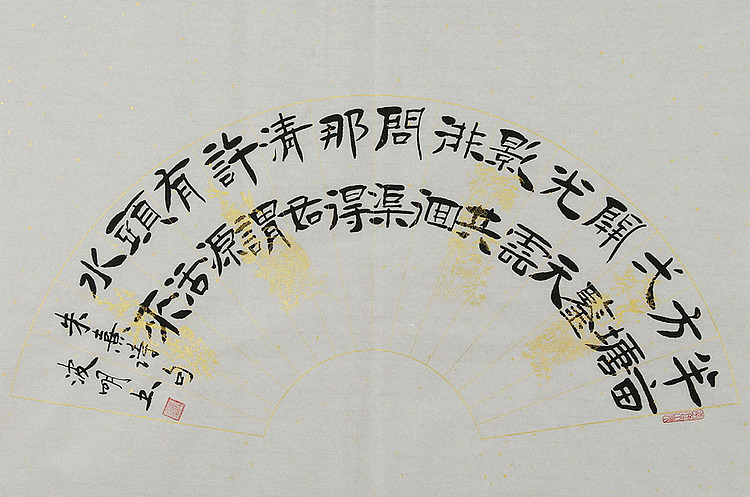 半畝
方塘
弌鑒
開天
光雲
影共
徘徊
問渠
那得
清如
許謂
有源
頭活
水来
朱熹詩句
波明书